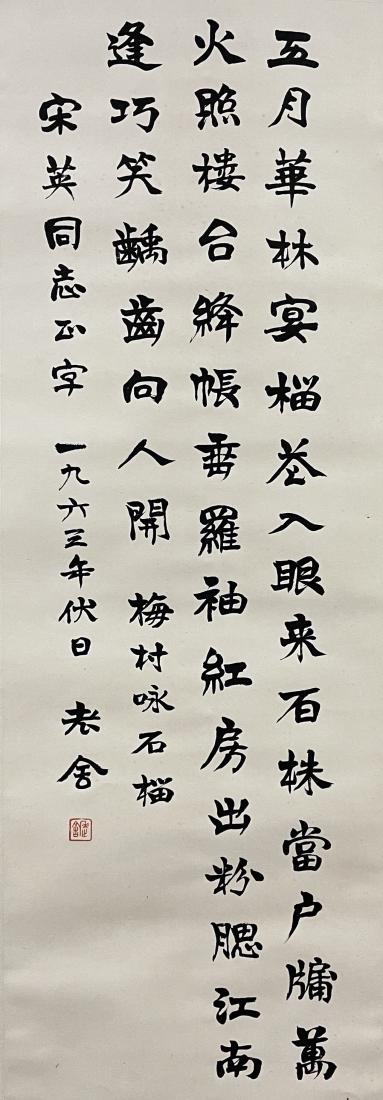 五月華林宴榴花入眼来百株當户牖萬
火照樓台絳帳垂羅袖紅房出粉腮江南
逢巧笑齲齒向人開 梅村咏石榴
宋英同志正字 一九六三年伏日 老舍
老舍